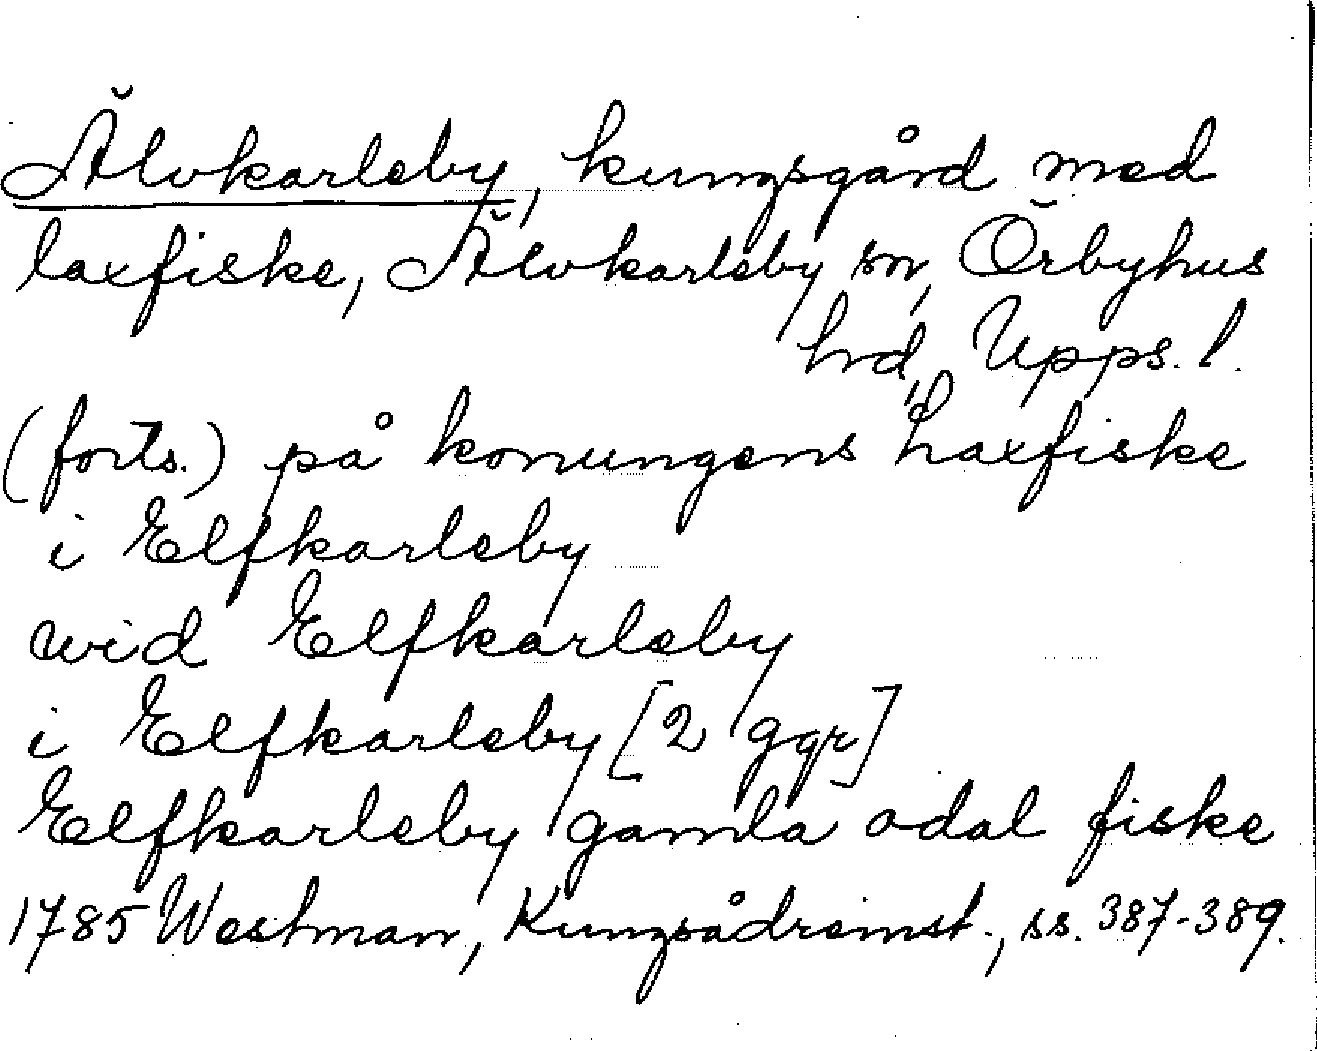 Älvkarleby, kungsgård med
laxfiske, Älvkarleby sn, Örbyhus
hd, Upps. l.
(forts.) på konungens Laxfiske
i Elfkarleby
wid Elfkarleby
i Elfkarleby [2 ggr]
Elfkarleby gamla odal fiske
1785 Westman, Kungsådreinst., ss. 387-389.